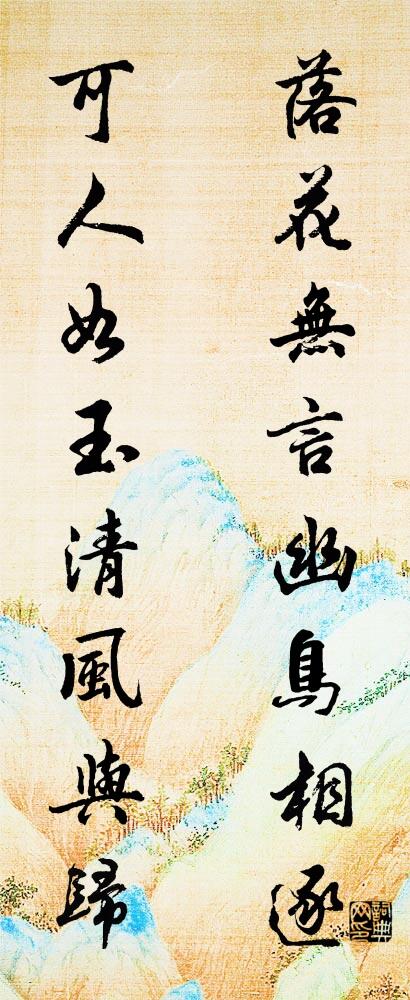 落花無言幽鳥相逐
可人如玉清風與歸